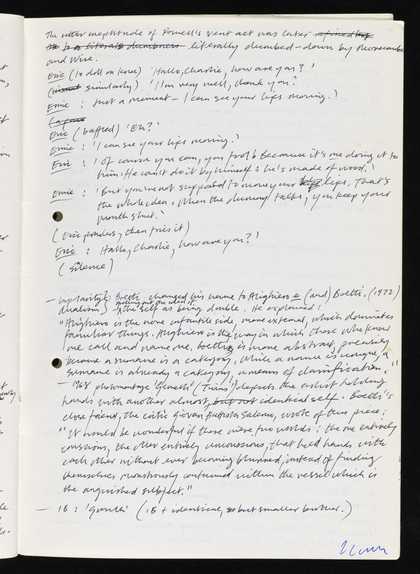 The utter ineptitude of Powell's vent act was later
literally dumbed-down by Morecambe
and Wise.
Eric (to doll on knee) 'Hallo, Charlie, how are you?'
( similarly) 'I'm very well, thank you.'
Ernie : 'Just a moment - I can see your lips moving.'
Eric (baffled) 'Eh?'
Ernie : 'I can see your lips moving.'
Eric : 'Of course you can, you fool! Because it's me doing it to
him! He can't do it by himself! he's made of wood.'
Ernie : 'But you're not supposed to move your lips. That's
the whole idea. When the dummy talks, you keep your
mouth shut.'
(Eric ponders, then tries it)
Eric : 'Hallo, Charlie, how are you?'
(silence)
Boetti changed his name to Alighiero e (and) Boetti. (1972)
dualism) the self as being double. He explained :
"Alighiero is the more infantile side, more external, which dominates
familiar things. Alighiero is the way in which those who know
me call and name me, Boetti is more abstract, precisely
because a surname is a category, while a name is unique, a
surname is already a category, a means of classification."
- His photomontage 'Gemelli' (Twins) depicts the artist holding
hands with another almost, but not identical self. Boetti's
close friend, the critic Giovan Battista Salerno, wrote of this piece :
"It would be wonderful if there were two worlds : the one entirely
conscious, the other entirely unconscious, that held hands with
each other without ever becoming blurred, instead of finding
themselves monstrously contained within the vessel which is
the anguished subject."
- 18 : 'Gemelli' (18 + identical, but smaller brother.)